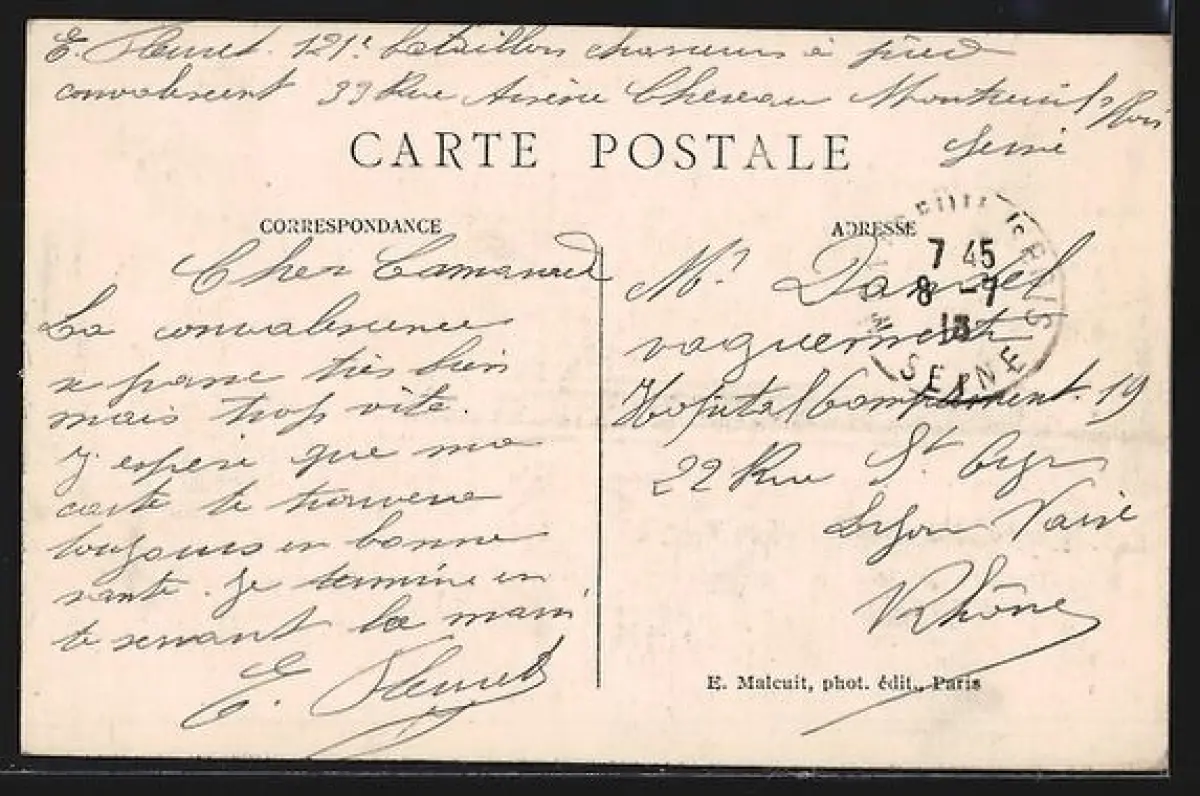 E. 121e bataillon chasseurs à pied
convalescent 33 Rue Arsène Chereau Montreuil s/ Bois
Seine
CARTE POSTALE
CORRESPONDANCE
ADRESSE
Cher Camarade
La convalescence
se passe très bien
mais trop vite.
J'espère que ma
carte te trouvera
toujours en bonne
santé. Je termine en
te serrant la main
E.
Mr Daniel
vaguemestre
Hopital Complement. 19
22 Rue St Cyr
Lyon Vaise
Rhône
7 45
8 -7
15
SEINE
E. Malcuit, phot. édit., Paris